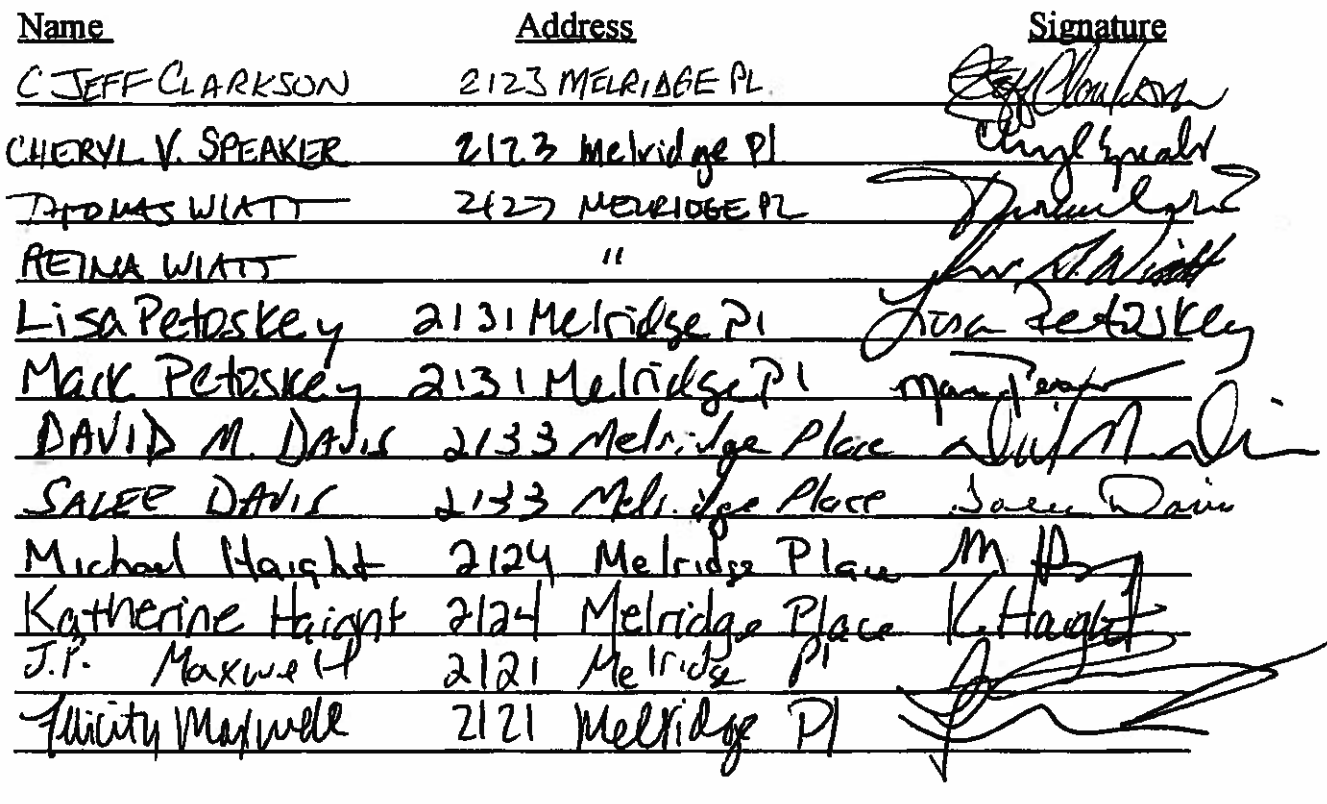 Name Address Signature
C JEFF CLARKSON 2123 MELRIDGE PL. Jeff Clarkson
CHERYL V. SPEAKER 2123 Melridge Pl Cheryl Speaker
THOMAS WIATT 2127 MELRIDGE PL
REINA WIATT " Wiatt
Lisa Petoskey 2131 Melridge Pl Lisa Petoskey
Mark Petoskey 2131 Melridge Pl
DAVID M. DAVIS 2133 Melridge Place
SALEE DAVIS 2133 Melridge Place Salee Davis
Michael Haight 2124 Melridge Place M
Katherine Haight 2124 Melridge Place K Haight
J.P. Maxwell 2121 Melridge Pl
Felicity Maxwell 2121 Melridge Pl